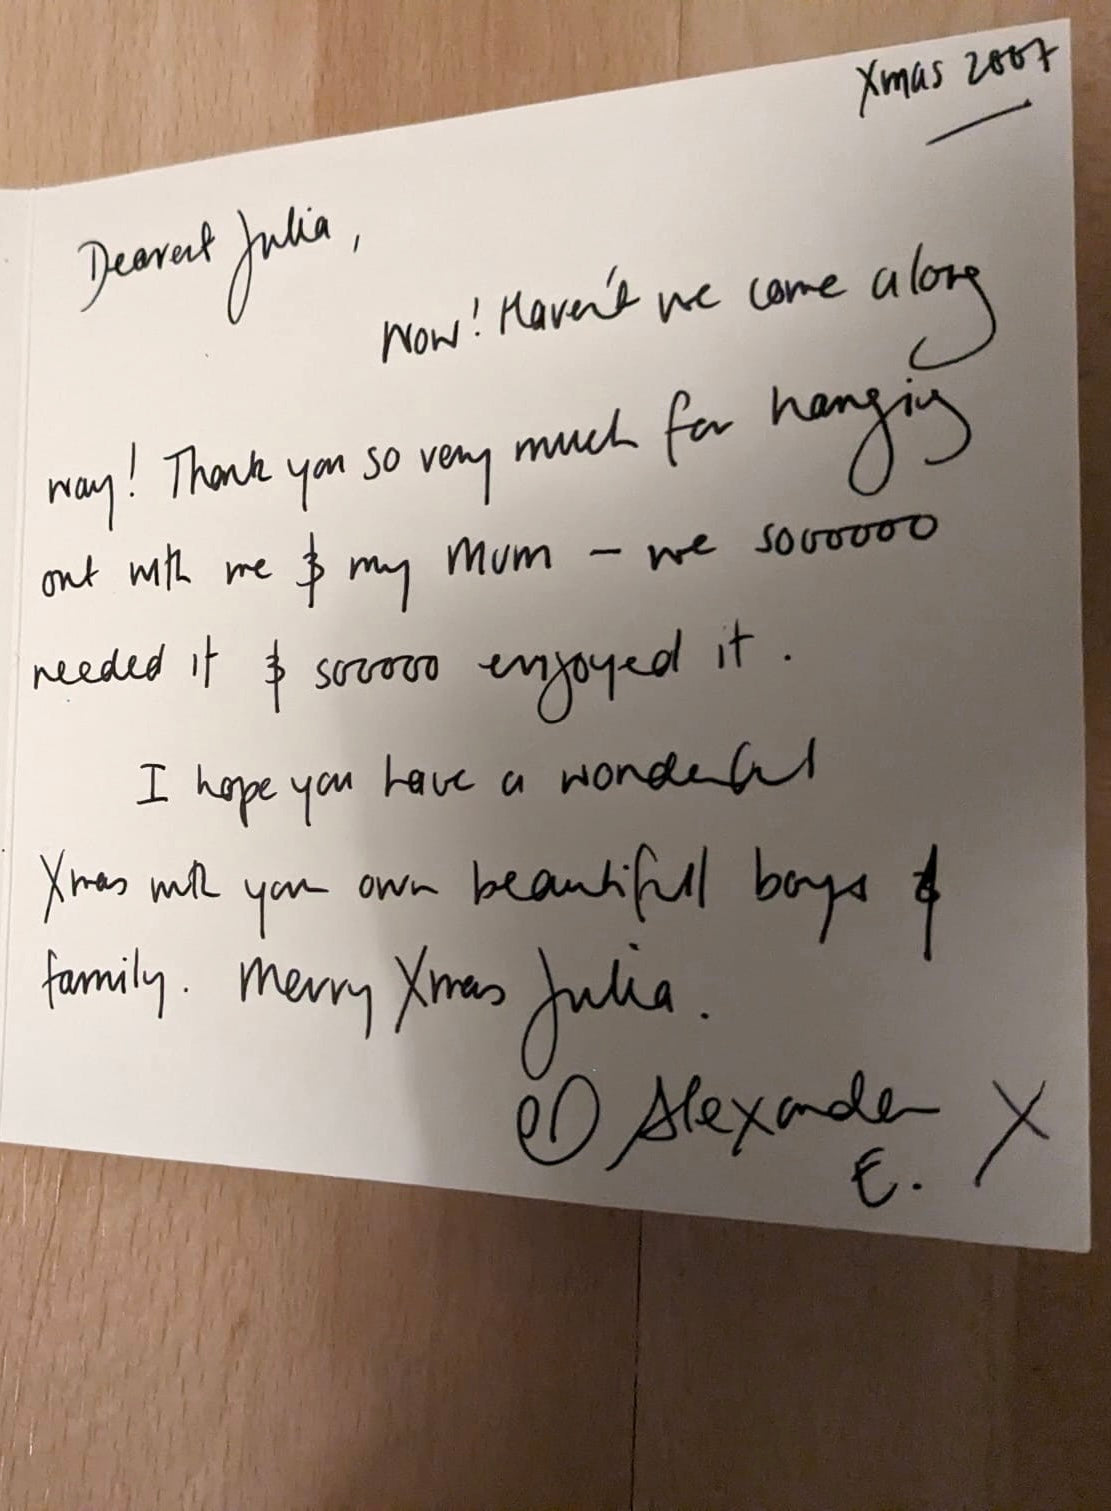 Xmas 2007
Dearest Julia,
Wow! Haven't we come a long
way! Thank you so very much for hanging
out with me & my Mum - we sooooooo
needed it & sooooo enjoyed it.
I hope you have a wonderful
Xmas with your own beautifull boys &
family. Merry Xmas Julia.
Alexander X
E.